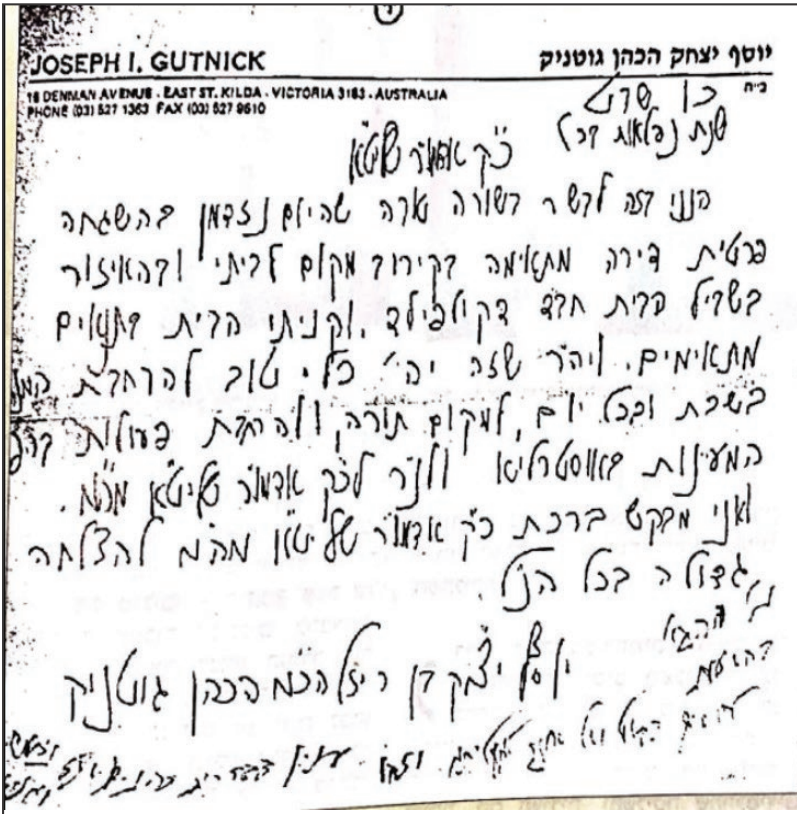 JOSEPH I. GUTNICK יוסף יצחק הכהן גוטניק
16 DENMAN AVENUE · EAST ST. KILDA · VICTORIA 3183 · AUSTRALIA ב״ה
PHONE (03) 527 1363 FAX (03) 527 9610
שנת נפלאות בכל
כ״ק אדמו״ר שליט״א
הנני בזה לבשר בשורה טובה שהיום נזדמן בהשגחה
פרטית דירה מתאימה בקירוב מקום לביתי ובהאיזור
בשביל בית חבד בקולפילד, וקניתי הבית בתנאים
מתאימים. ויה״ר שזה יהי׳ כלי טוב להרחבת
בשבת ובכל יום, למקום תורה, ולהרחבת פעולות
המעינות באוסטרליא ולנ״ר לכ״ק אדמו״ר שליט״א מה״מ.
ואני מבקש ברכת כ״ק אדמו״ר שליט״א מה״מ להצלחה
גדולה בכל הנ״ל.
יוסף יצחק בן רייזל הכ״מ הכהן גוטניק